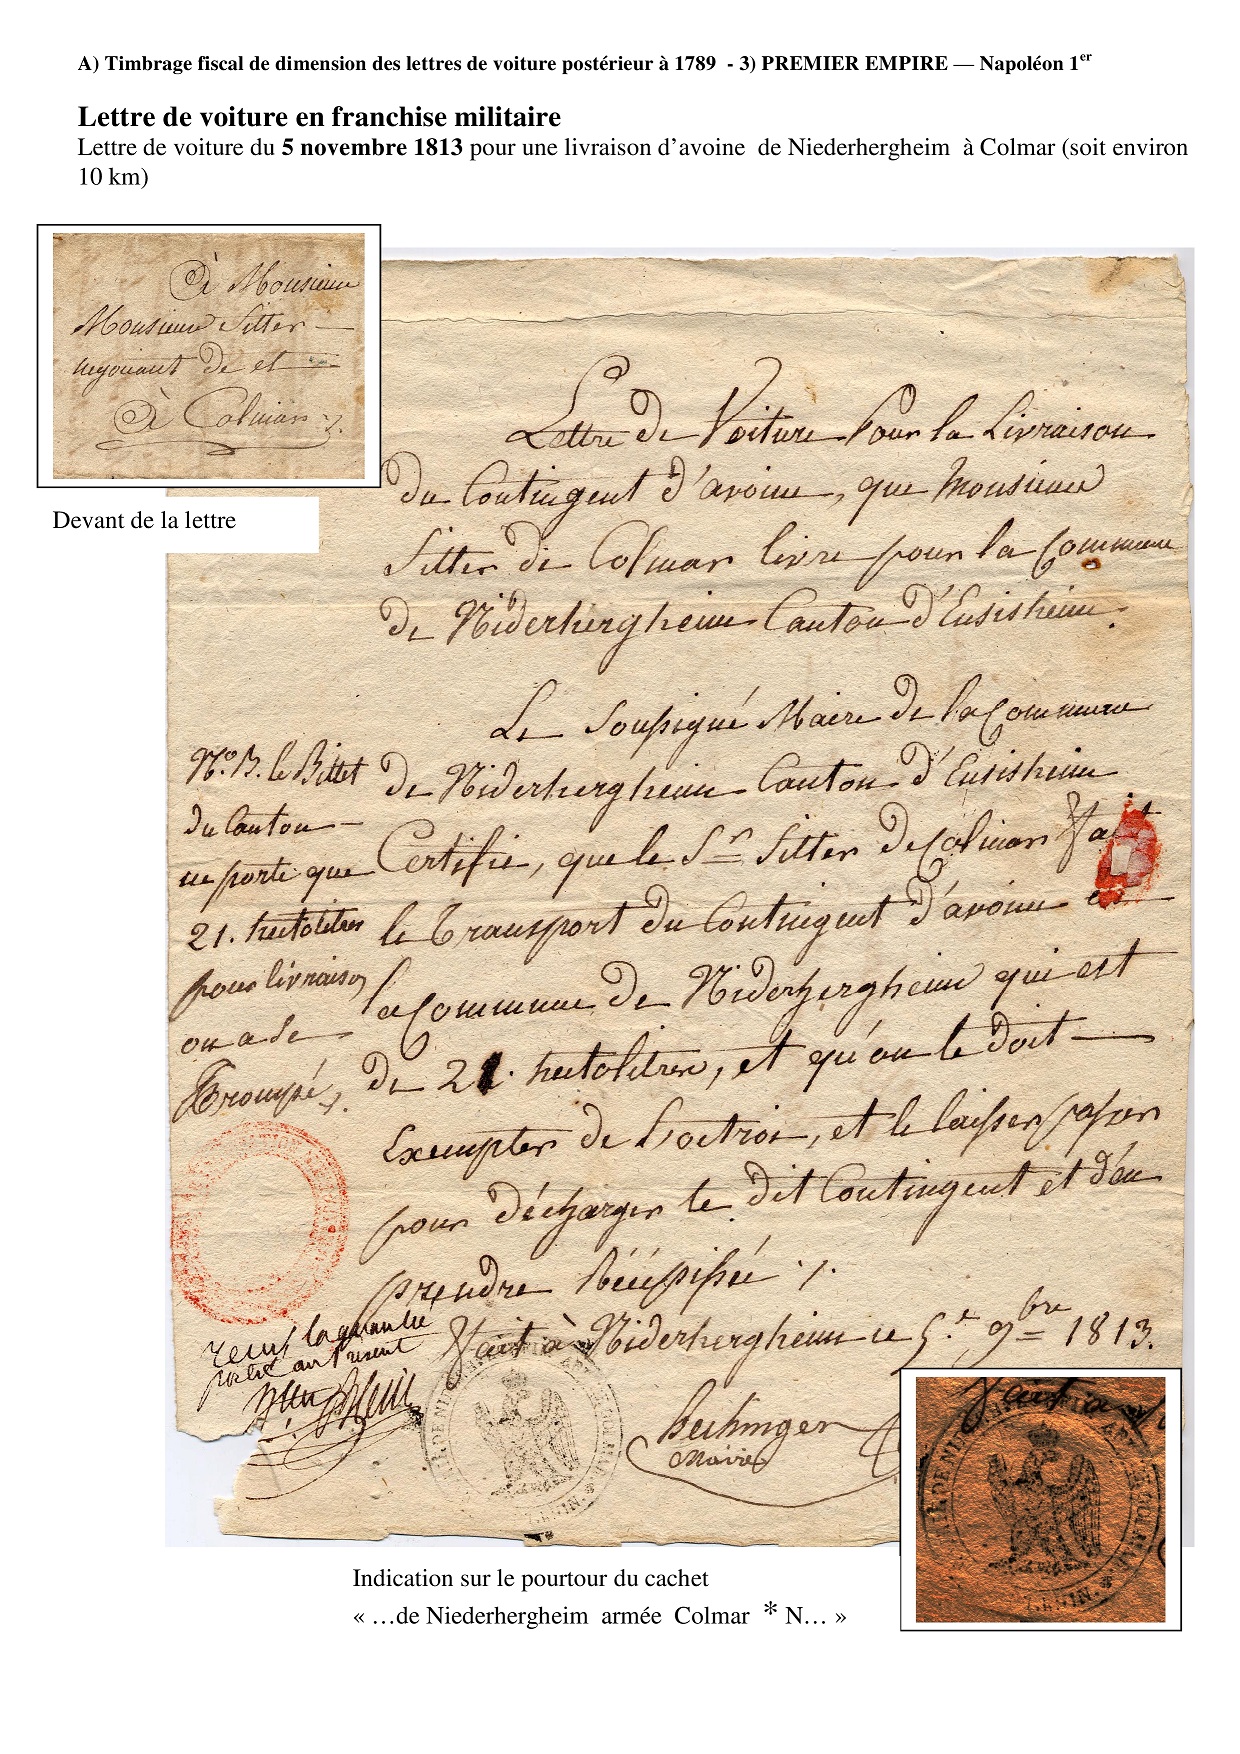 A) Timbrage fiscal de dimension des lettres de voiture postérieur à 1789 - 3) PREMIER EMPIRE — Napoléon 1er
Lettre de voiture en franchise militaire
Lettre de voiture du 5 novembre 1813 pour une livraison d’avoine de Niederhergheim à Colmar (soit environ
10 km)
à Monsieur
Monsieur Sitter
negotiant de et
à Colmar
Devant de la lettre
Lettre de Voiture Pour la Livraison
du Contingent d'avoine, que Monsieur
Sitter de Colmar livre pour la Commune
de Niderhergheim Canton d'Ensisheim.
Le Soussigné Maire de la Commune
de Niderhergheim Canton d'Ensisheim
Certifie, que le Sr Sitter de Colmar fait
le Transport du Contingent d'avoine
la Commune de Niderhergheim qui est
de 21. hectolitres, et qu'on le doit
Exempter de l'octroi, et le laisser passer
pour décharger le dit Contingent et d'en
prendre Récépissé ./.
fait à Niderhergheim ce 5.e 9bre 1813.
No. B. le Billet
du Canton
ne porte que
21. hectolitres
pour livraison
on a se
Trompé
la quantité
au Present
Maire
DE NI
COLMAR
Indication sur le pourtour du cachet
« …de Niederhergheim armée Colmar * N… »